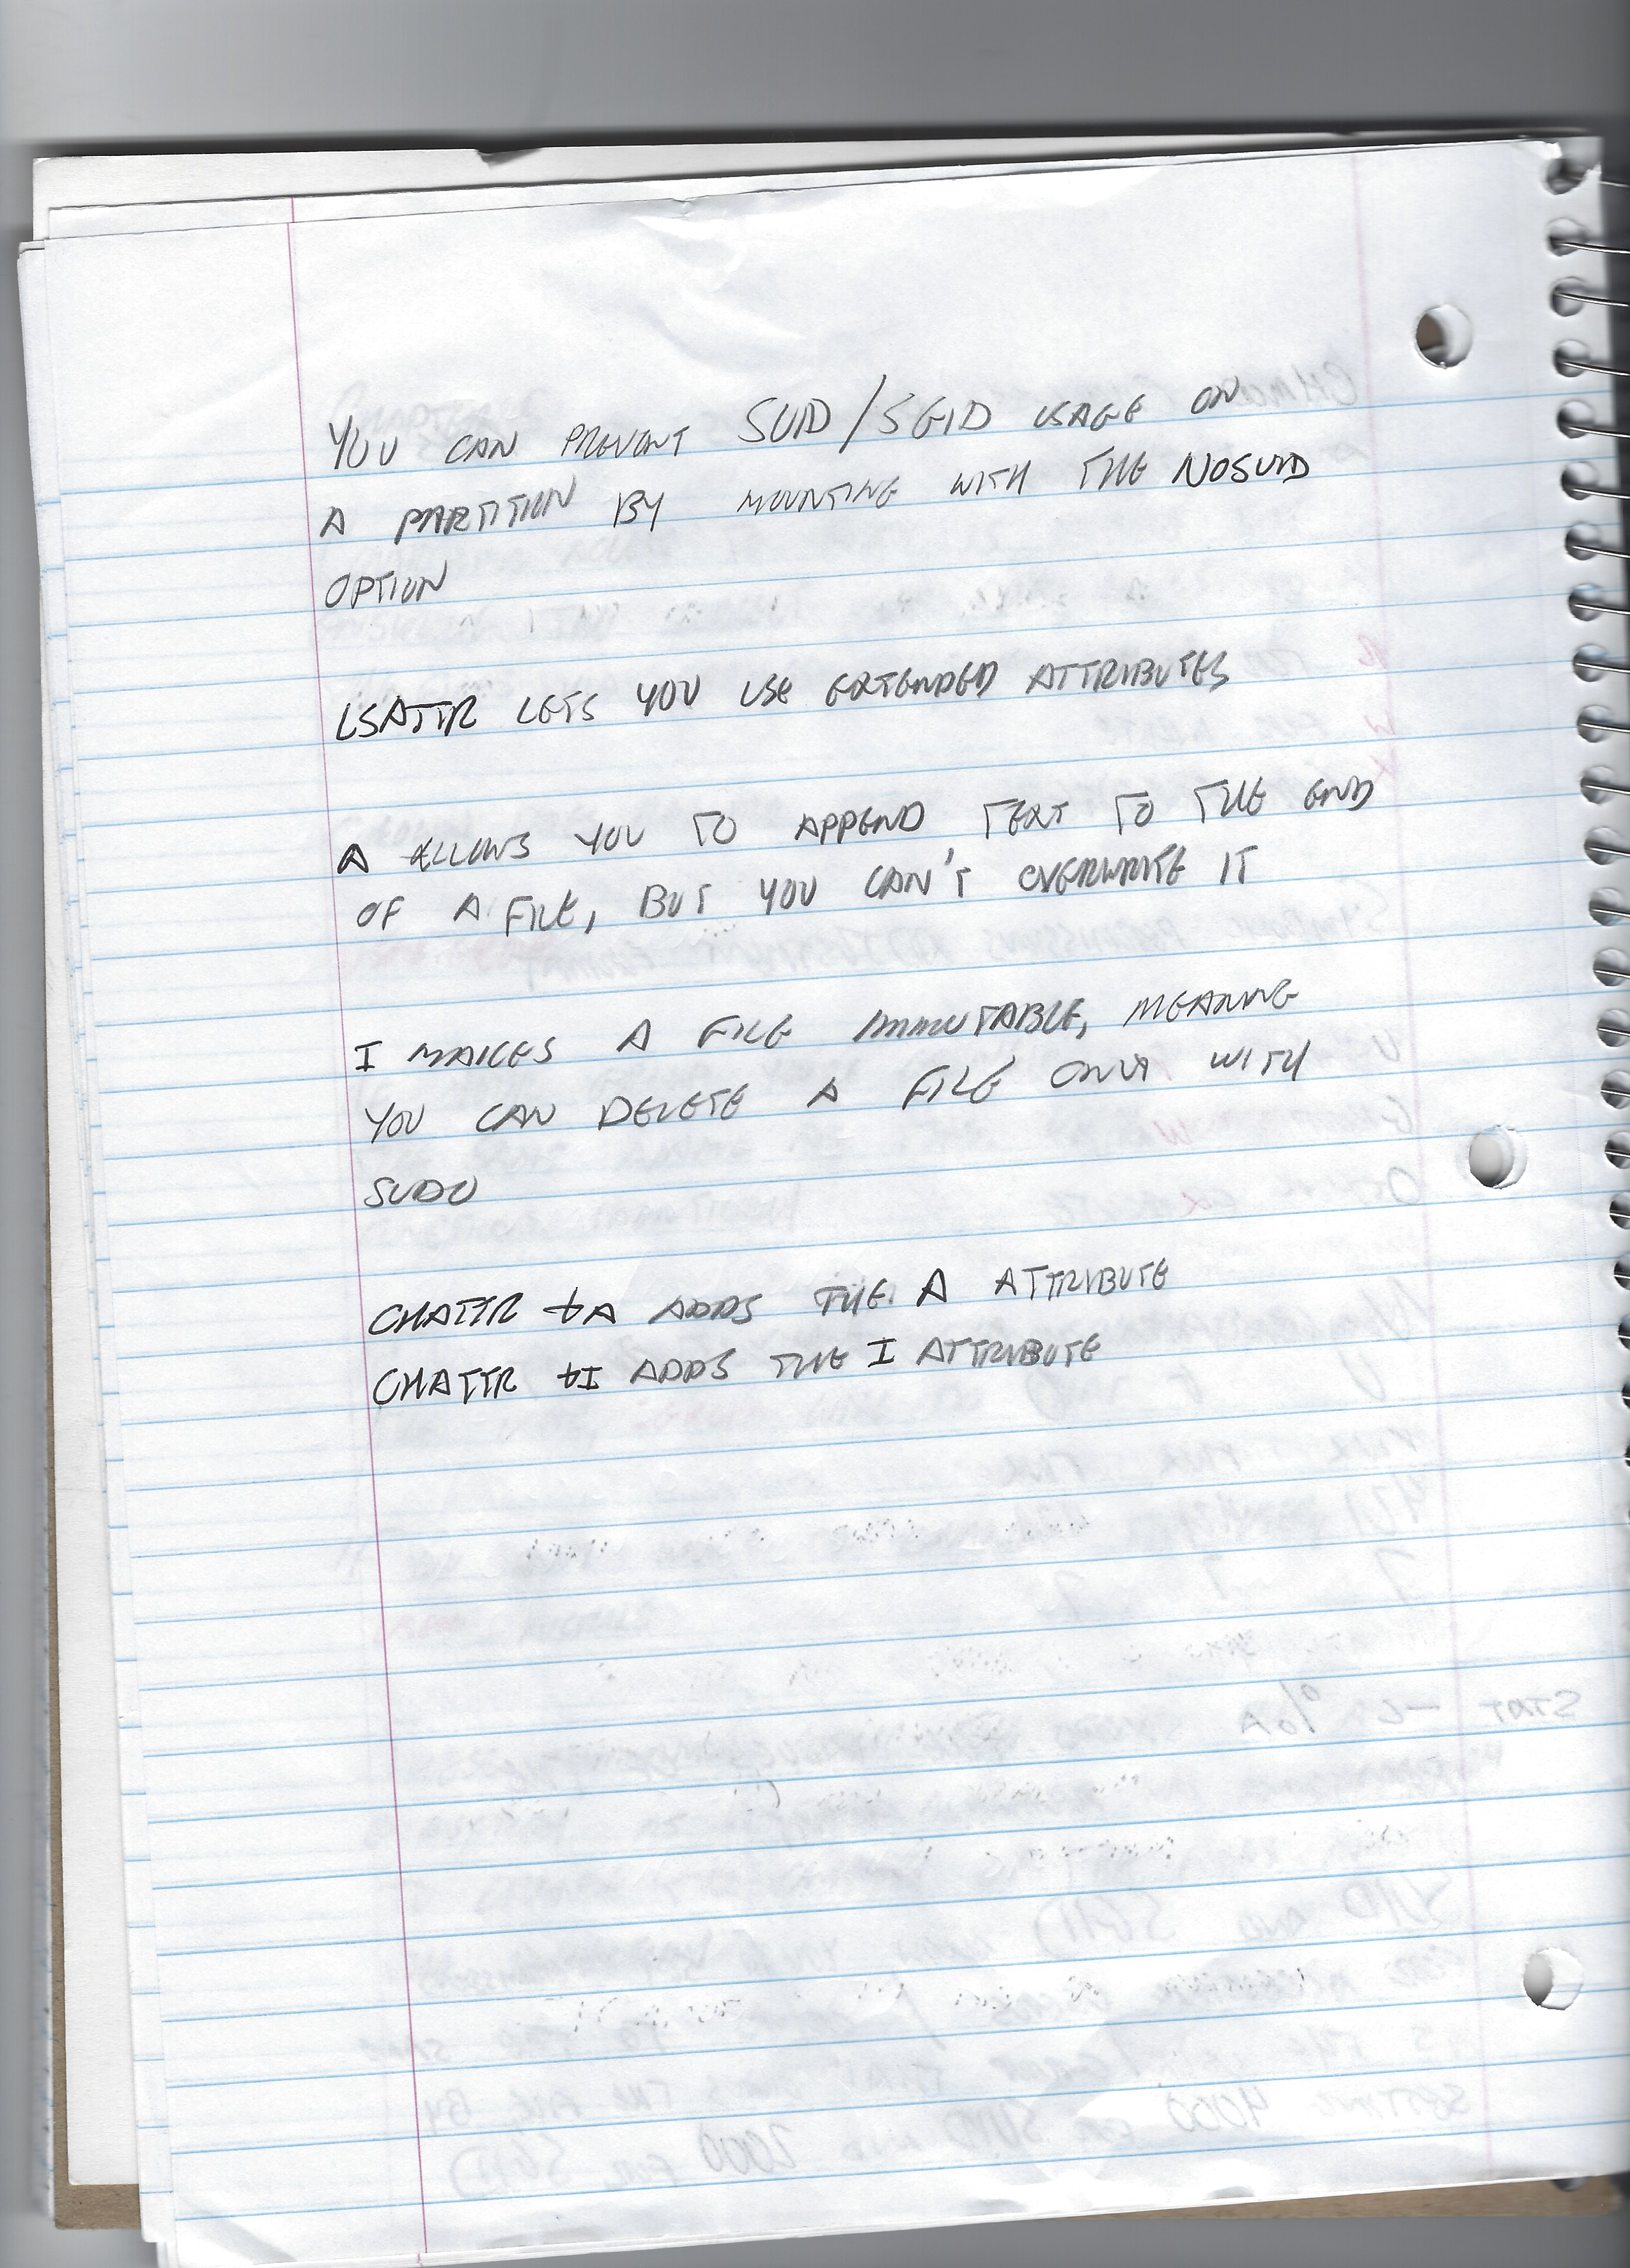 YOU CAN PREVENT SUID/SGID USAGE ON
A PARTITION BY MOUNTING WITH THE NOSUID
OPTION
LSATTR LETS YOU USE EXTENDED ATTRIBUTES
A ALLOWS YOU TO APPEND TEXT TO THE END
OF A FILE, BUT YOU CAN'T OVERWRITE IT
I MAKES A FILE IMMUTABLE, MEANING
YOU CAN DELETE A FILE ONLY WITH
SUDO
CHATTR +A ADDS THE A ATTRIBUTE
CHATTR +I ADDS THE I ATTRIBUTE